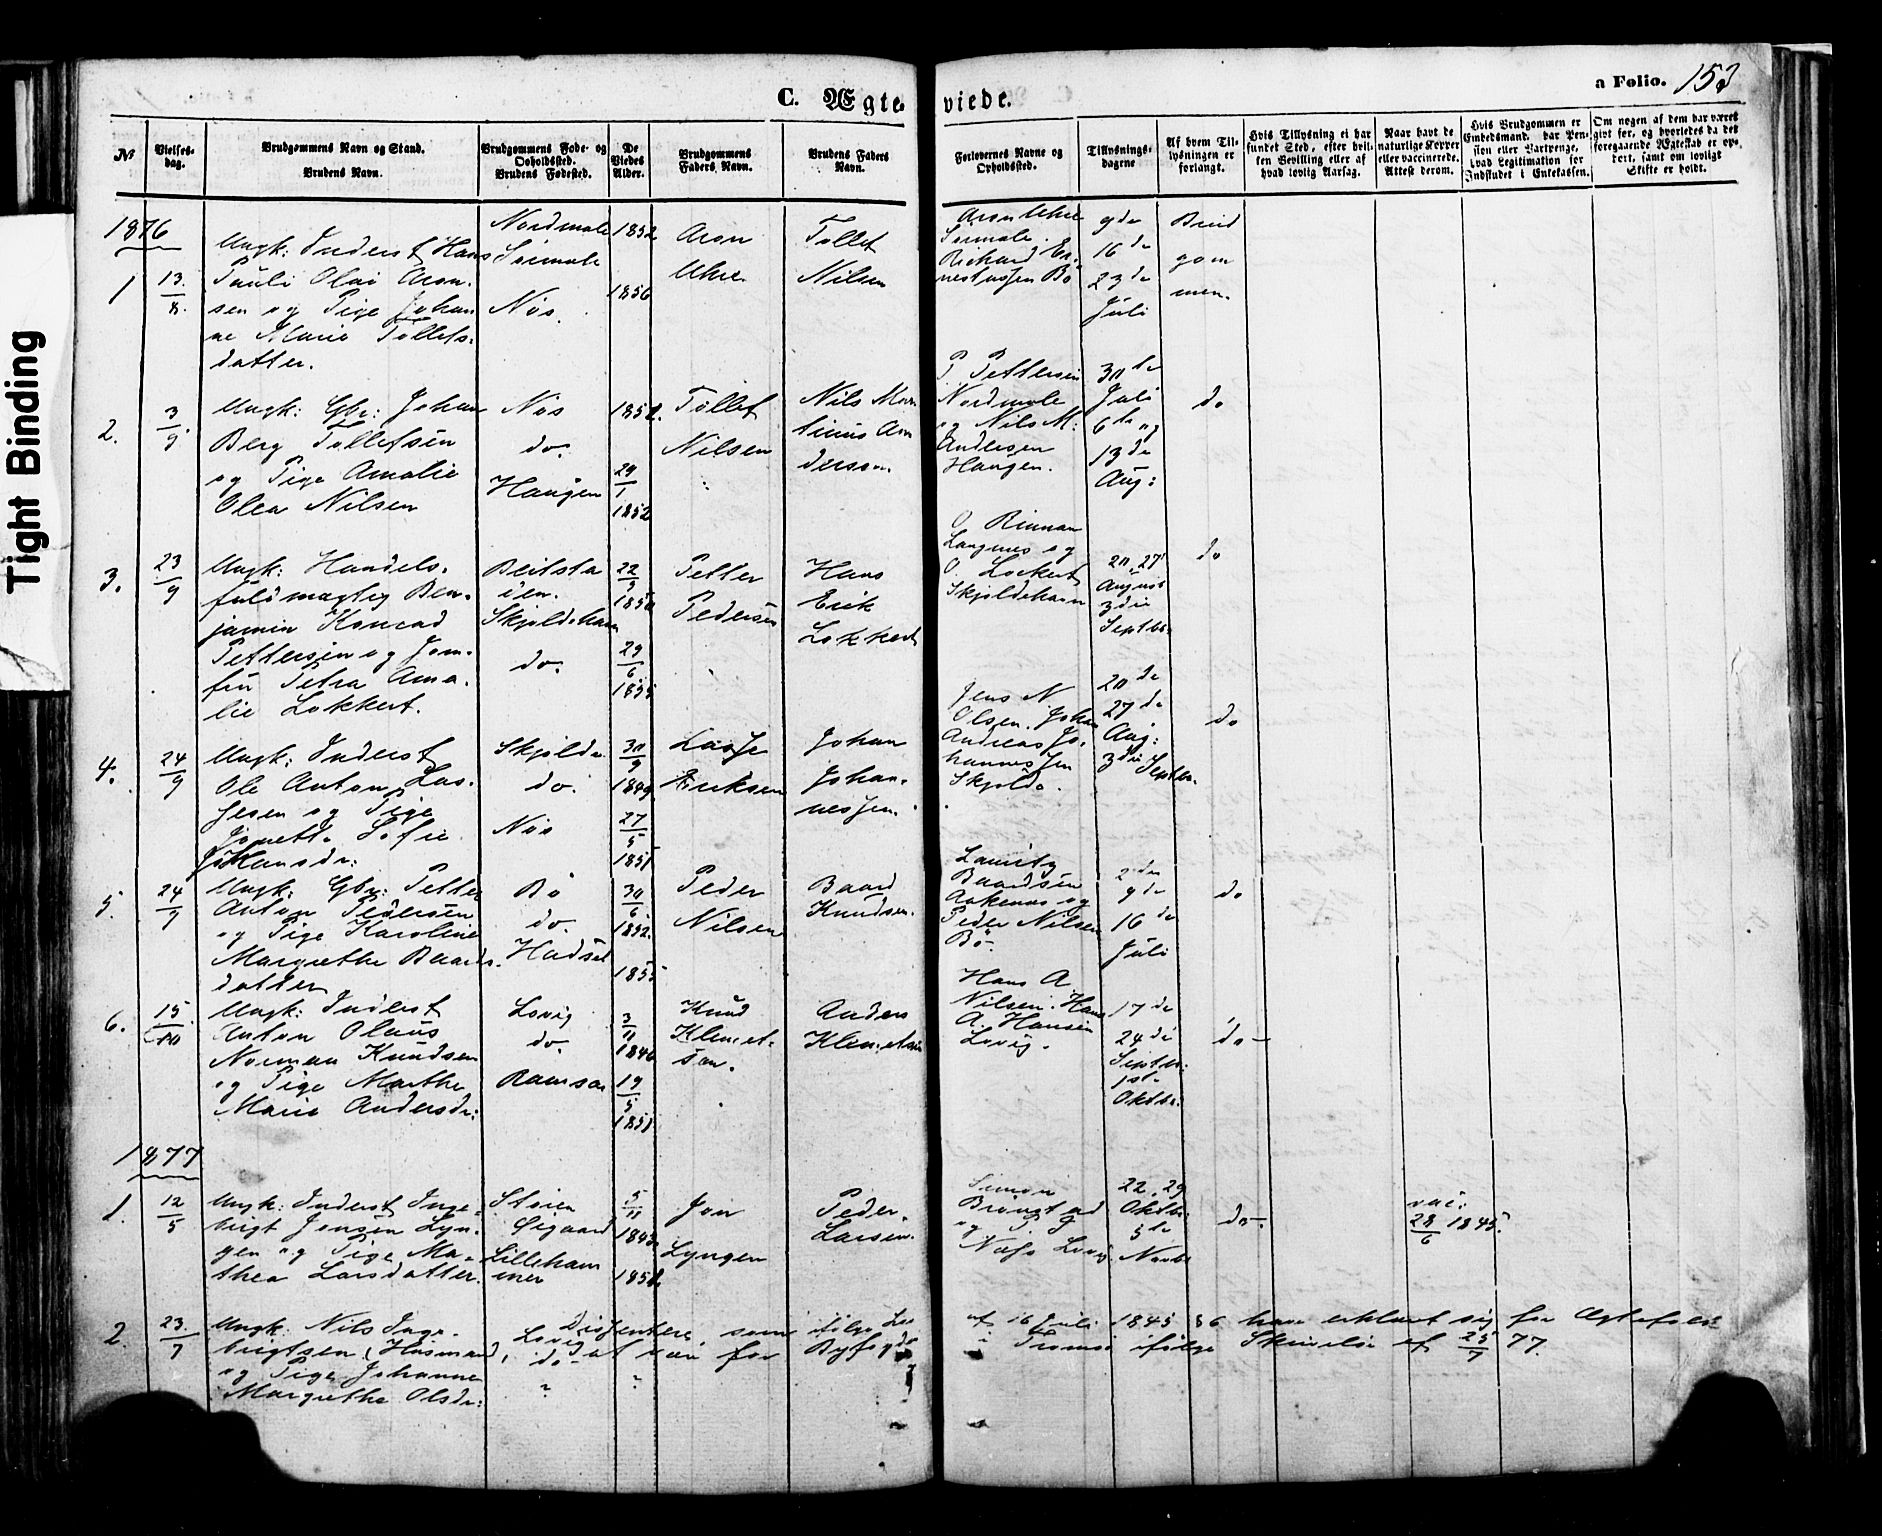 Tight Binding
C. Ægte viede.
a Folio. 153
№
Vielses-
dag.
Brudgommens Navn og Stand.
Brudens Navn.
Brudgommens Føde- og
Opholdssted.
Brudens Fødested.
De
Viedes
Alder.
Brudgommens
Faders Navn.
Brudens Faders
Navn.
Forlovernes Navne og
Opholdssted.
Tillysnings-
dagene
Af hvem Til-
lysningen er
forlangt.
Hvis Tillysning ei har
fundet Sted, efter hvil-
ken Bevilling eller af
hvad lovlig Aarsag.
Naar havt de
naturlige Kopper
eller vaccinerede.
Attest derom.
Hvis Brudgommen er
Embedsmand, har Pen-
sion eller Vartpenge,
hvad Legitimation for
Indskudet i Enkekassen.
Om nogen af dem har været
gift før, og hvorledes da det
foregaaende Ægteskab er op-
hørt, samt om lovligt
Skifte er holdt.
1876
1
13/8.
Ungk: Inderst Hans
Pauli Olai Aron-
sen og Pige Johan
ne Marie Tollefs-
datter.
Nordmole
Sørmole
Nøs.
1852
1856
Aron
Uhre
Tollef
Nilsen
Aron Uhre
Sørmole.
Richard Er-
nestussen Bø
9de
16de
23de
Juli
Brud
gom
men.
2.
3/9.
Ungk: Gbr: Johan
Berg Tollefsen
og Pige Amalie
Olea Nilsen
Nøs
do.
Haugen
1852.
29/1
1852
Tollef
Nilsen
Nils Mar
tinus An
dersen.
P Pettersen
Nordmole
og Nils M:
Andersen
Haugen.
30de
Juli
6de og
13de
Aug:
do
3.
23/9
Ungk: Handels-
fuldmægtig Ben-
jamin Konrad
Pettersen og Jom-
fru Petra Ama-
lie Lokkert.
Beitsta
den.
Skjoldehavn
do.
22/9
1850
29/6
1855
Petter
Pedersen
Hans
Erik
Lokkert
O Rinnan
Langnes og
O Lockert
Skjoldehavn
20, 27
August
3die
Septbr.
do
4.
24/9
Ungk: Inderst
Ole Anton Las-
sesen og Pige
Jonette Sofie
Johansdr:
Skjolde
do.
Nøs
30/9
1849.
27/5
1851
Lasse
Eriksen
Johan
Johan-
nessen.
Jens N
Olsen. Johan
Andreas Jo-
hannessen
Skjolde.
20de
27de
Aug:
3die Septbr.
do
5.
24/9
Ungk: Gbr: Petter
Anton Pedersen
og Pige Karoline
Margrethe Baards-
datter
Bø
do.
Hadsel
30/6
1852.
1855
Peder
Nilsen
Baard
Knudsen.
Lauritz
Baardsen
Aakenes og
Peder Nilsen
Bø.
2den
9de
16de
Juli
do
6.
15/10
Ungk: Inderst
Anton Olaus
Norman Knudsen
og Pige Marthe
Marie Andersdr:
Lovig
do.
Ramsaa
3/11
1846
19/5
1851
Knud
Klemet-
sen.
Anders
Klemetsen
Hans A
Nilsen. Hans
A. Hansen
Lovig.
17de
24de
Septbr:
1ste
Oktbr.
do
1877
1.
12/5
Ungk: Inderst Inge-
brigt Jonsen Lyn-
gen og Pige Ma-
thea Larsdatter.
Støren
Øegaard
Lilleham
mer
5/11
1843
1852
Jon
Lyngen
Peder
Larsen.
Simon
Lovig.
22, 29
Oktbr:
5te
Novbr
do
vac:
28/6 1845.
2.
23./7
Ungk: Nils Inge-
brigtsen (Husmand)
og Pige Johanne
Margrethe Olsdr:
Lovig
do
Dissentere, som ifølge Lov af 16 Juli 1845 §6 have erklæret sig for Ægtefolk
at være for Byfogden i Tromsø ifølge Skrivelse af 25/7 77.